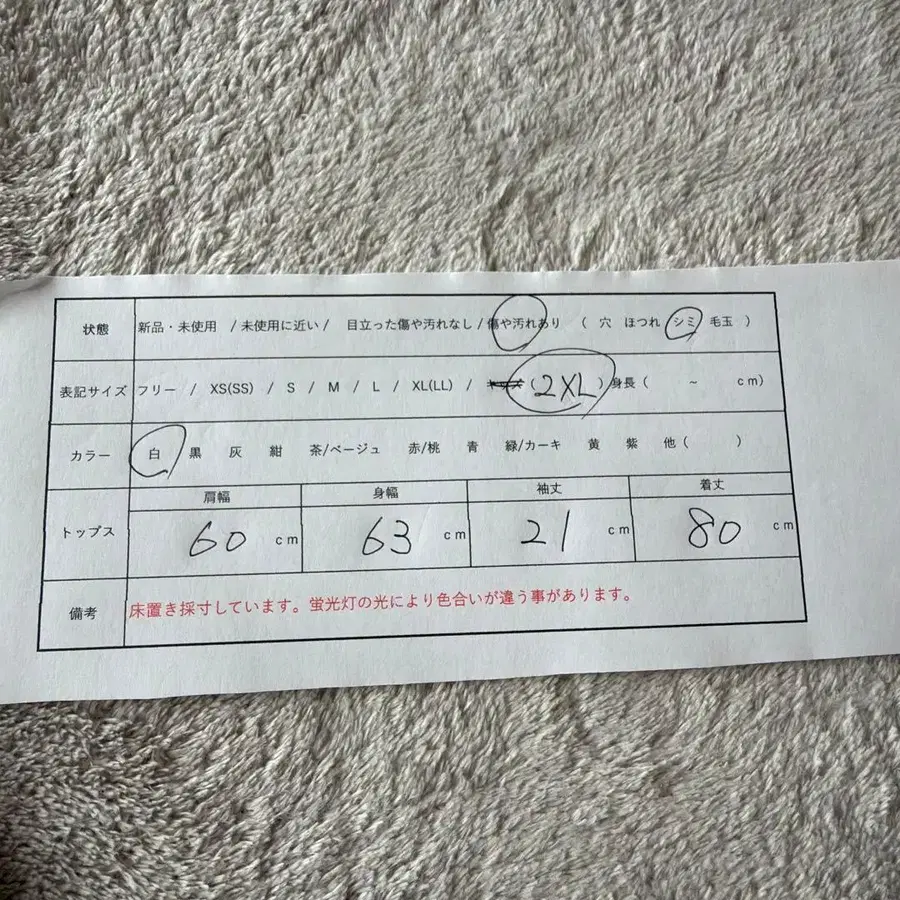 状態 新品・未使用 / 未使用に近い / 目立った傷や汚れなし / 傷や汚れあり ( 穴 ほつれ シミ 毛玉 )
表記サイズ フリー / XS(SS) / S / M / L / XL(LL) / ( 2XL ) 身長 ( ~ cm)
カラー 白 黒 灰 紺 茶/ベージュ 赤/桃 青 緑/カーキ 黄 紫 他 ( )
トップス 肩幅 身幅 袖丈 着丈
60 cm 63 cm 21 cm 80 cm
備考 床置き採寸しています。蛍光灯の光により色合いが違う事があります。